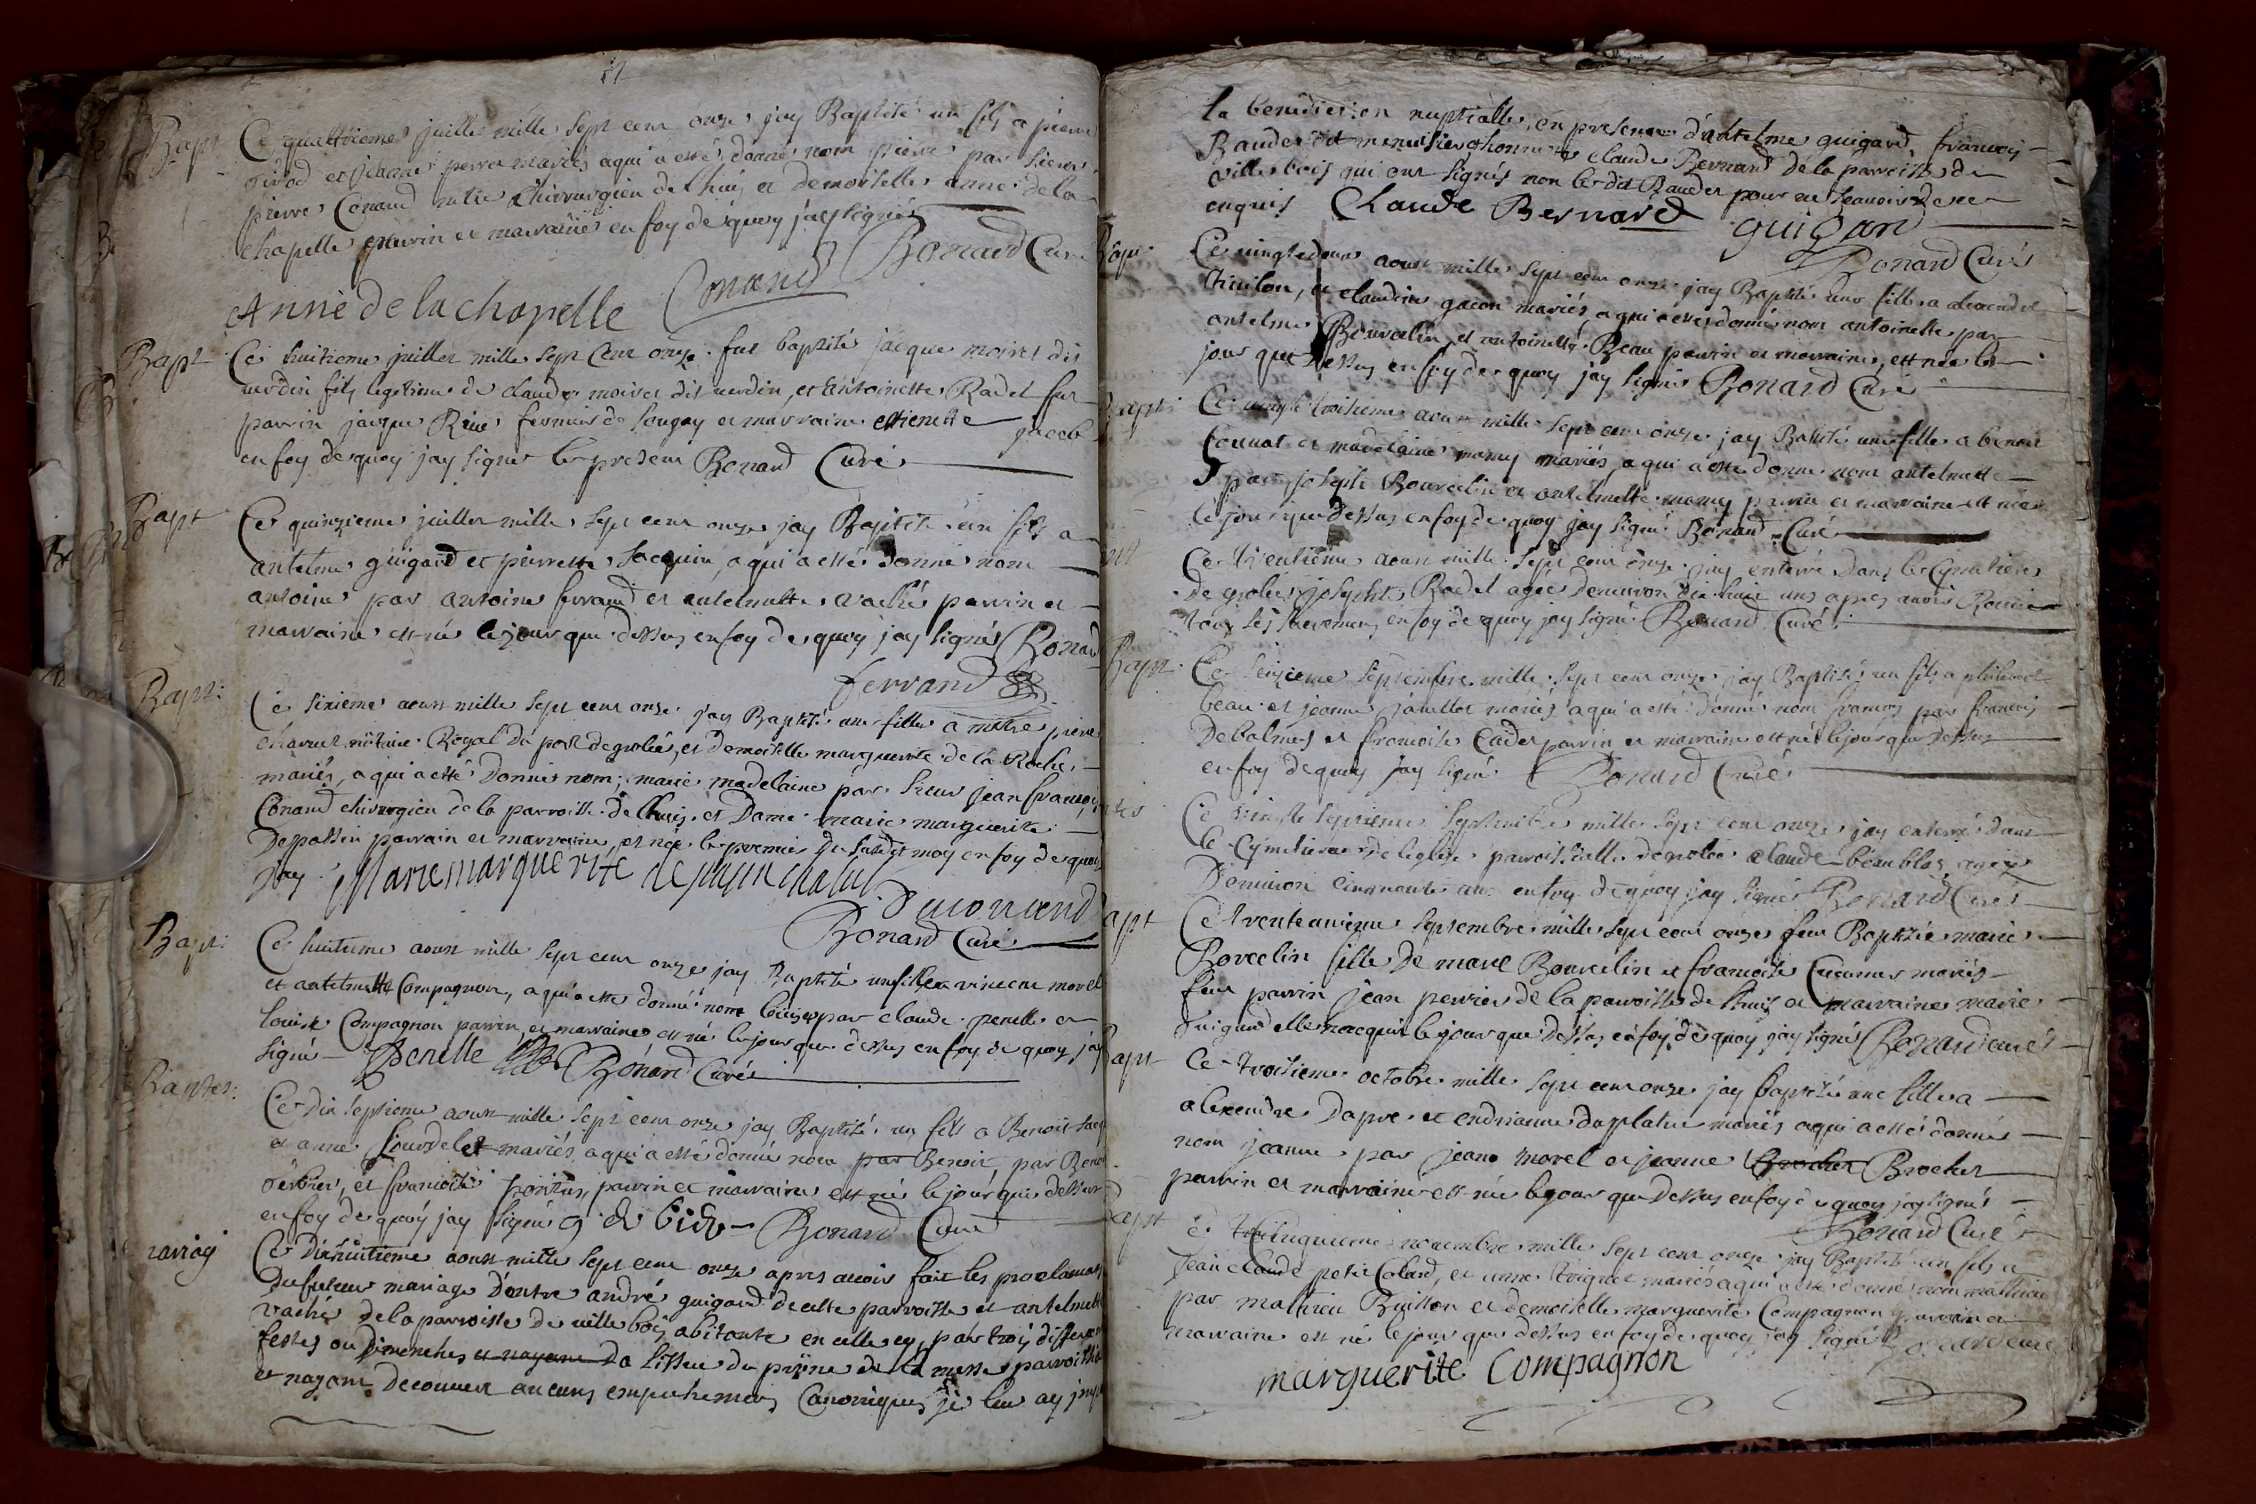 Bapt Ce quattrieme juillet mille sept cent onze jay Baptisé un fils a pierre
girod et jeanne perra mariés aqui a esté donné nom pierre par sieur
pierre Conand mtre chirurgien de lhuis et demoiselle anne de la
chapelle parrin et marraine en foy de quoy jay signé
Bonard Curé
Anne de la chapelle Conand
Bapt Ce huitieme juillet mille sept Cent onze fut baptisé jacque moiret dit
verdin fils legitime de claude moiret dit verdin, et antoinette Radel fut
parrin jacque Rive fermier de longay et marraine ettienette jacob
en foy de quoy jay signé le present Bonard Curé
Bapt Ce quinzieme juillet mille sept cent onze jay Baptisé un fils a
antelme guigard et pierrette Jacquin, aqui a esté donné nom
antoine par antoine ferrand et antelmette vaché parrin et
marraine est né le jour que dessus en foy de quoy jay signé Bonard
ferrand
Bapt: Ce sixieme aoust mille sept cent onze jay Baptisé une fille a mtre pierre
charvet notaire Royal du port de grolée, et demoiselle marguerite de la Roche
mariés, aqui a esté donné nom, marie madelaine par sieur jean francois
Conand chirurgien de la parroisse de lhuis et Dame marie marguerite
Depassin parrain et marraine, est née le premier du susdit moy en foy de quoy
jay Marie marguerite de passin chatul
Deconand
Bonard Curé
Bapt: Ce huitieme aoust mille sept cent onze jay Baptisé un fille a vincent morel
et antelmette Compagnon, aqui a esté donné nom louise par claude perelle et
louise Compagnon parrin, et marraine, est né le jour que dessus en foy de quoy jay
signé Perelle Bonard Curé
Baptes: Ce dix septieme aoust mille sept cent onze jay Baptisé un fils a Benoit
et anne sourdelet mariés, aqui a esté donné nom par Benoit, par Benoit
et francoise parrin et marraine est né le jour que dessus
en foy de quoy jay signé Bonard Curé
mariag Ce dixhuitieme aoust mille sept cent onze apres avoir fait les proclamations
du futeur mariage d'entre andré guigard de cette parroisse et antelmette
vaché de la parroisse de ville bois abitante en celle cy, par trois differentes
festes ou Dimenches et nayant Da lissue du prône de la messe parroissialle
et nayant decouvert aucuns empechemens Canoniques je leur ay imparti
la benediction nuptialle, en presence d'antelme guigard, francois
Bauder dit menusier, honneste claude Bernard de la parroisse de
ville bois qui ont signés non le dit Bauder pour ne scavoir de ce
enquis Claude Bernard guigard
Bonard Curé
Bapt Ce vingtedeux aoust mille sept cent onze jay Baptisé une fille a alexandre
thuilon, et claudine gacon mariés, aqui a esté donné nom antoinette par
antelme Bourcelin et antoinette Beau parrin et marraine, est née le
jour que dessus en foy de quoy jay signé Bonard Curé
Bapt: Ce vingte troisieme aoust mille sept cent onze jay Batisé une fille a benoit
et madelaine mamy mariés, aqui a esté donné nom antelmette
par joseph Bourcelin et antelmette mamy parrin et marraine est née
le jour que dessus en foy de quoy jay signé Bonard Curé
Ce trentieme aoust mille sept cent onze jay enterré dans le Cymetiere
de grolée joseph Radel agée denviron dix huit ans apres avoir Receu
tous les sacremens en foy de quoy jay signé Bonard Curé
Bapt Ce seizieme septembre mille sept cent onze jay Baptisé un fils a philibert
beau et jeanne javellot mariés aqui a esté donné nom francois par francois
Debalmes et francoise Cader parrin et marraine est né le jour que dessus
en foy de quoy jay signé Bonard Curé
Ce vingte septieme septembre mille sept cent onze jay enterré dans
le Cymetiere de leglise parroissialle de grolée claude bemblos agée
denviron cinquante ans en foy de quoy jay signé Bonard Curé
Bapt Ce trente unieme septembre mille sept cent onze feut Baptisée marie
Borcelin fille de marc Bourcelin et francoise Cucunat mariés
feut parrin jean perrier de la parroisse de lhuis et marraine marie
guigard elle nacquit le jour que dessus en foy de quoy jay signé Bonard curé
Bapt Ce troisieme octobre mille sept cent onze jay baptisé une fille a
alexendre Dapve et endrianne duplatre mariés aqui a esté donné
nom jeanne par jean morel et jeanne Brochet Brochet
parrin et marraine est née le jour que dessus en foy de quoy jay signé
Bonard Curé
Bapt Ce Cinquieme novembre mille sept cent onze jay Baptisé un fils a
jean claude petit Colard, et anne Trignet mariés aqui a esté donné nom mathieu
par mathieu Buisson et demoiselle marguerite Compagnon parrain et
marraine est né le jour que dessus en foy de quoy jay signé Bonard curé
marguerite Compagnon